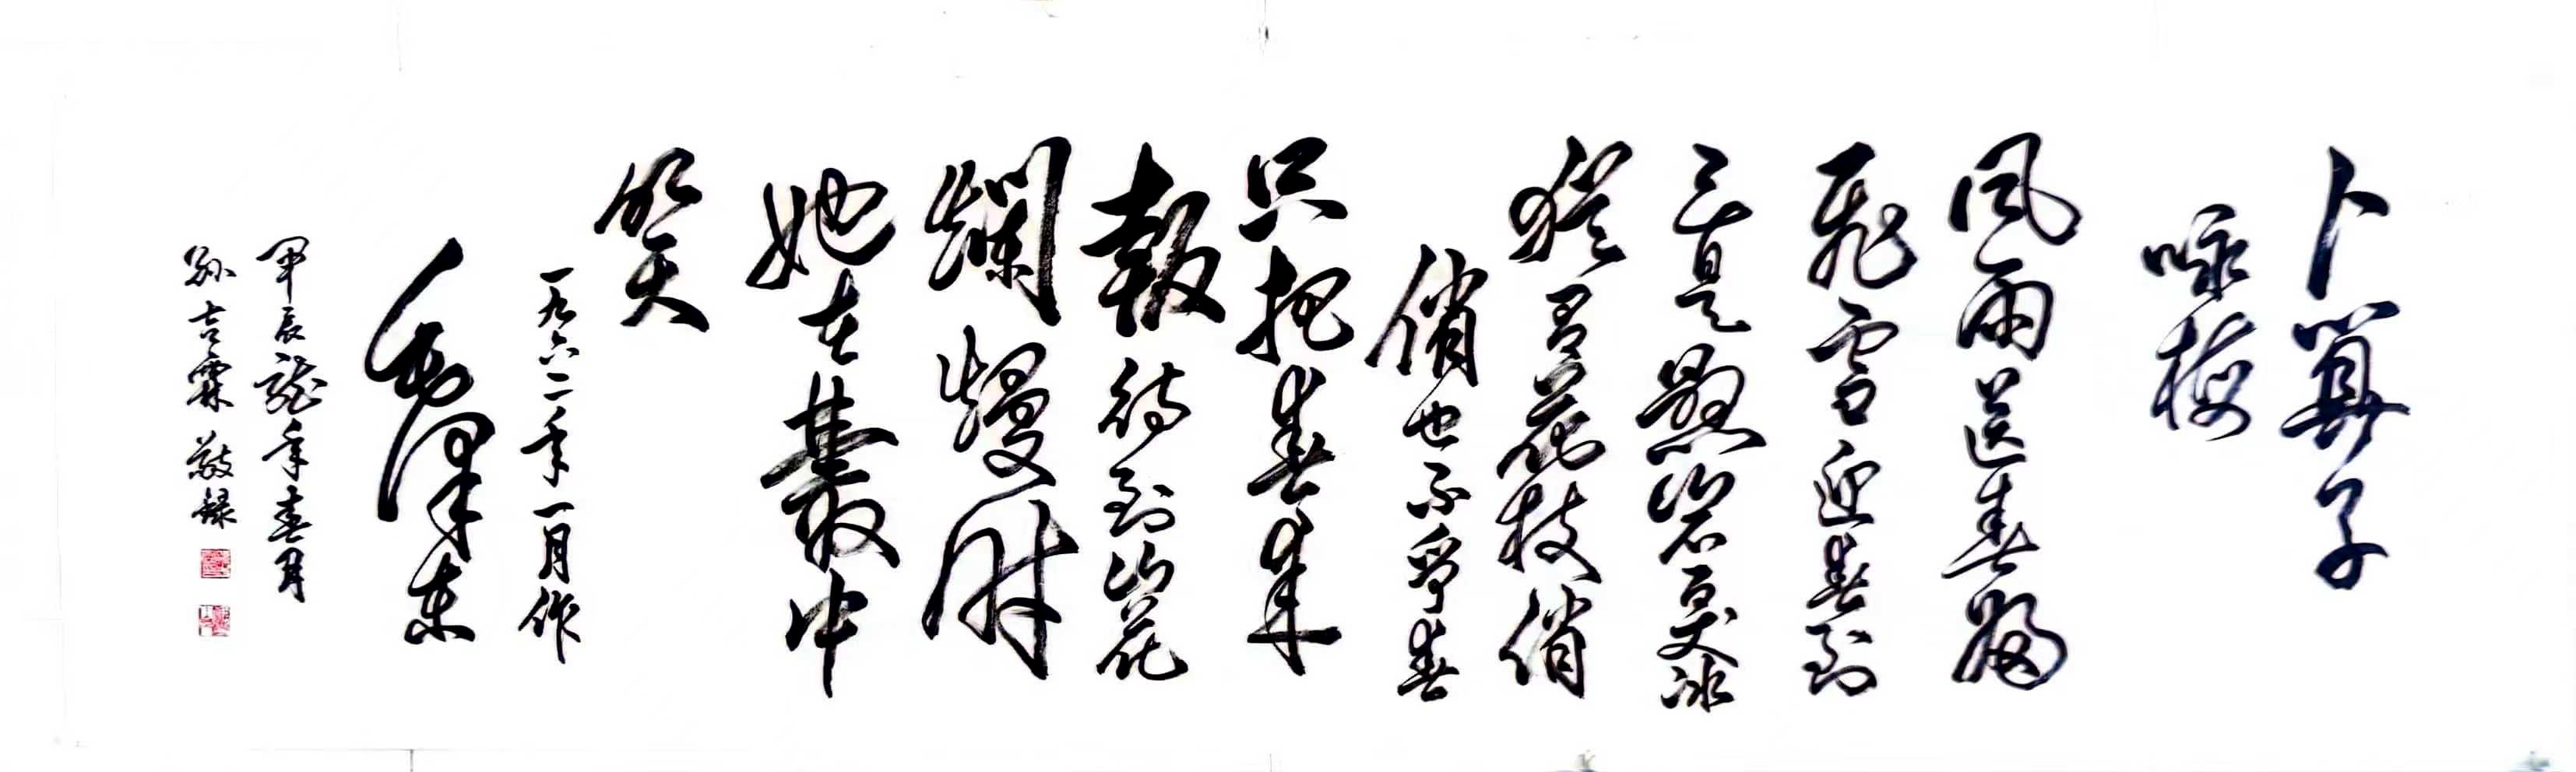 卜算子
咏梅
風雨送春歸
飛雪迎春到
已是懸岩百丈冰
猶有花枝俏
俏也不爭春
只把春來
報待到山花
爛熳時
她在叢中
笑
一九六二年一月作
毛澤東
甲辰龍年春月
孫吉霖敬録